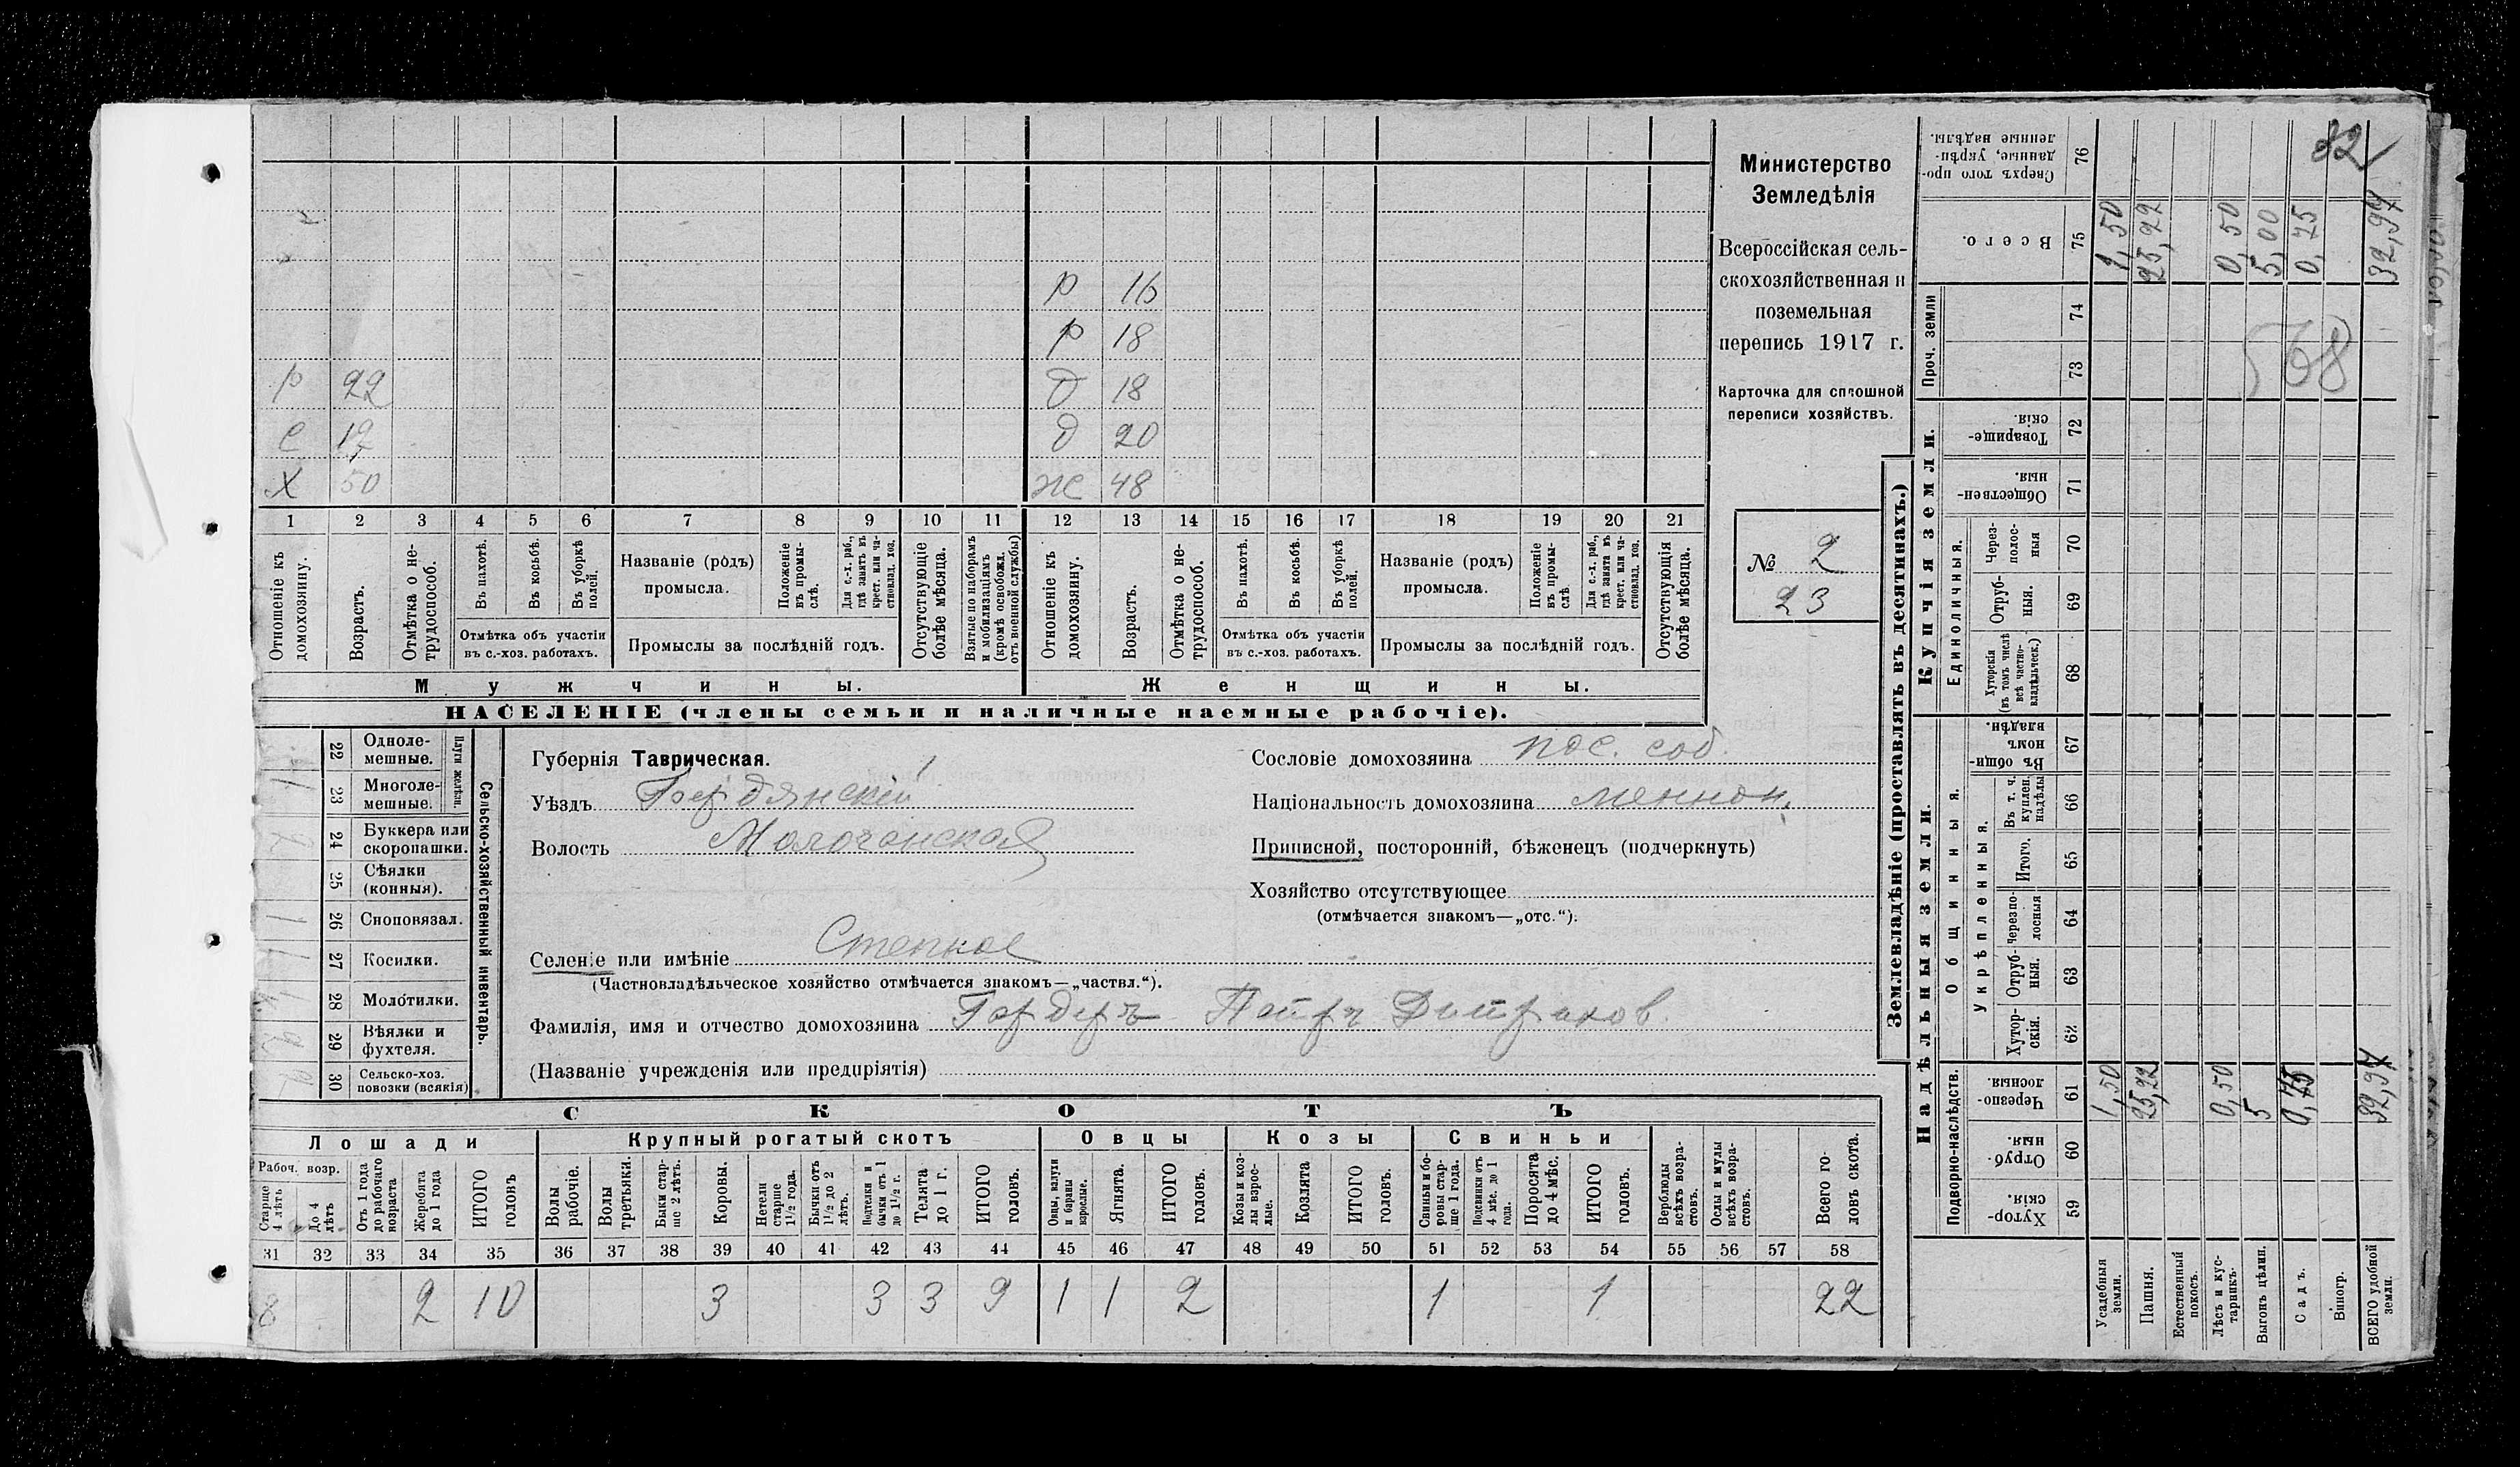 Министерство
Земледѣлія
Всероссійская сель-
скохозяйственная и
поземельная
перепись 1917 г.
Карточка для сплошной
переписи хозяйствъ.
№ 2
23
р 16
р 18
р 22 д 18
с д 20
х 50 же 48
1 2 3 4 5 6 7 8 9 10 11 12 13 14 15 16 17 18 19 20 21
Отношеніе къ домохозяину.
Возрастъ.
Отмѣтка о не-трудоспособ.
Въ пахотѣ.
Въ косьбѣ.
Въ уборкѣ полей.
Отмѣтка объ участіи
въ с.-хоз. работахъ.
Названіе (родъ)
промысла.
Положеніе въ промы-слѣ.
Для с.-х. раб., гдѣ занятъ въ крест. или ча-стновлад. хоз.
Промыслы за послѣдній годъ.
Отсутствующіе болѣе мѣсяца.
Взятые по наборамъ и мобилизаціямъ (кромѣ освобожд. отъ военной службы)
Отношеніе къ домохозяину.
Возрастъ.
Отмѣтка о не-трудоспособ.
Въ пахотѣ.
Въ косьбѣ.
Въ уборкѣ полей.
Отмѣтка объ участіи
въ с.-хоз. работахъ.
Названіе (родъ)
промысла.
Положеніе въ промы-слѣ
Для с.-х. раб., гдѣ занята въ крест. или ча-стновлад. хоз.
Промыслы за послѣдній годъ.
Отсутствующія болѣе мѣсяца.
Мужчины. Женщины.
НАСЕЛЕНІЕ (члены семьи и наличные наемные рабочіе).
22 Одноле-мешные.
23 Многоле-мешные.
Плуги желѣзн.
24 Буккера или скоропашки.
25 Сѣялки (конныя).
26 Сноповязал.
27 Косилки.
28 Молотилки.
29 Вѣялки и фухтеля.
30 Сельско-хоз. повозки (всякія)
Сельско-хозяйственный инвентарь.
Губернія Таврическая.
Уѣздъ Бердянскій
Волость Молочанская
Селеніе или имѣніе Степное
(Частновладѣльческое хозяйство отмѣчается знакомъ—„частвл.“).
Фамилія, имя и отчество домохозяина Гердеръ Петръ Дитрихов.
(Названіе учрежденія или предпріятія)
Сословіе домохозяина пос. соб.
Національность домохозяина меннон.
Приписной, посторонній, бѣженецъ (подчеркнуть)
Хозяйство отсутствующее
(отмѣчается знакомъ—„отс.“).
СКОТЪ
Лошади Крупный рогатый скотъ Овцы Козы Свиньи
Рабоч. возр.
Старше 4 лѣтъ
До 4 лѣтъ
Отъ 1 года до рабочаго возраста
Жеребята до 1 года
ИТОГО головъ
Волы рабочіе.
Волы третьяки.
Быки стар-ше 2 лѣтъ.
Коровы.
Нетели старше 1½ года.
Бычки отъ 1½ до 2 лѣтъ.
Подтелки и бычки отъ 1 до 1½ г.
Телята до 1 г.
ИТОГО головъ.
Овцы, валухи и бараны взрослые.
Ягнята.
ИТОГО головъ.
Козы и коз-лы взрос-лые.
Козлята
ИТОГО головъ.
Свиньи и бо-ровы стар-ше 1 года.
Подсвинки отъ 4 мѣс. до 1 года.
Поросята до 4 мѣс.
ИТОГО головъ.
Верблюды всѣхъ возра-стовъ.
Ослы и мулы всѣхъ возра-стовъ.
Всего го-ловъ скота.
31 32 33 34 35 36 37 38 39 40 41 42 43 44 45 46 47 48 49 50 51 52 53 54 55 56 57 58
8 2 10 3 3 3 9 1 1 2 1 1 22
Землевладѣніе (проставлять въ десятинахъ.)
Надѣльныя земли. Купчія земли.
Подворно-наслѣдств.
Общинныя.
Укрѣпленныя.
Единоличныя.
Проч. земли
Хутор-скія. 59
Отруб-ныя. 60
Черезпо-лосныя. 61
Хутор-скія. 62
Отруб-ныя. 63
Черезпо-лосныя 64
Итого. 65
Въ т. ч. куплен. надѣлы 66
Въ общин-номъ владѣн. 67
Хуторскія (въ томъ числѣ всѣ частно-владѣльческ.) 68
Отруб-ныя. 69
Через-полос-ныя 70
Обществен-ныя 71
Товарище-скія 72
73
74
Всего. 75
Сверхъ того про-данные, укрѣп-ленные надѣлы. 76
Усадебныя земли. 1,50 1,50
Пашня. 25,22 25,22
Естественный покосъ.
Лѣсъ и кус-тарникъ. 0,50 0,50
Выгонъ цѣлин. 5 5,00
Садъ. 0,75 0,75
Виногр.
ВСЕГО удобной земли. 32,97 32,97
32
568